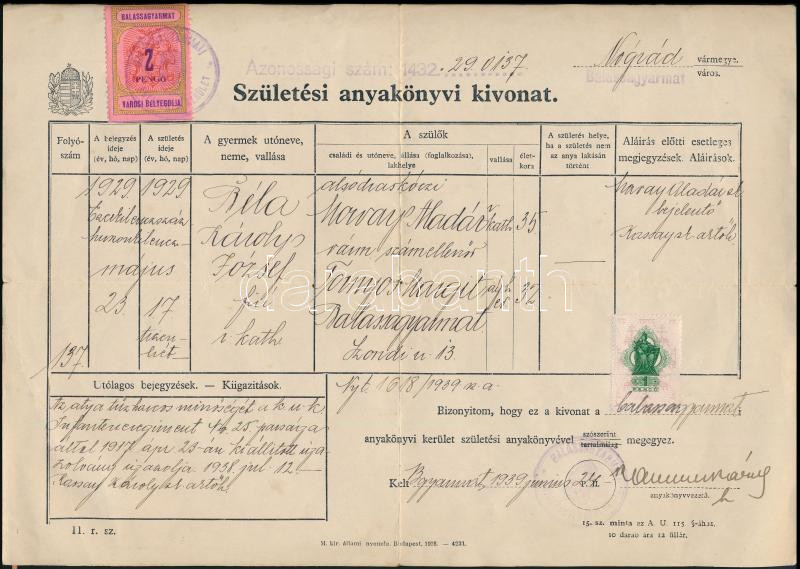 BALASSAGYARMAT
2
PENGŐ
VÁROSI BÉLYEGDÍJA
Azonossági szám: 1432.
29.0137
Nógrád vármegye.
Balassagyarmat város.
Születési anyakönyvi kivonat.
Folyó-szám
A bejegyzés ideje (év, hó, nap)
A születés ideje (év, hó, nap)
A gyermek utóneve, neme, vallása
A szülők
családi és utóneve, állása (foglalkozása), lakhelye
vallása
élet-kora
A születés helye, ha a születés nem az anya lakásán történt
Aláírás előtti esetleges megjegyzések. Aláírások.
137
1929
Ezerkilencszáz
huszonkilencz
május
23
1929
17
tizenhét
Béla
Károly
József
fiú
r. kath
Aladár
kath.
35
vám számellenőr
Tornyos Margit
32
Balassagyarmat
Szondi u. 13.
Aladár sk
bejelentő
sk
Utólagos bejegyzések. — Kiigazítások.
Az atya tűzharcos minőségét a k. u. k.
Infanterieregiment No 25. parancsnoksága
által 1917 ápr 23-án kiállított iga-
zolvány igazolja 1938. jul. 12.—
Károly sk.
1618/1939
Bizonyítom, hogy ez a kivonat a balassagyarmati
anyakönyvi kerület születési anyakönyvével szószerint
tartalmilag megegyez.
Kelt Bgyarmat, 1939 junius 21. n.
anyakönyvvezető.
1
11. r. sz.
M. kir. állami nyomda. Budapest, 1928. — 4231.
15. sz. minta az A. U. 115. §-ához.
10 darab ára 12 fillér.
darabanth